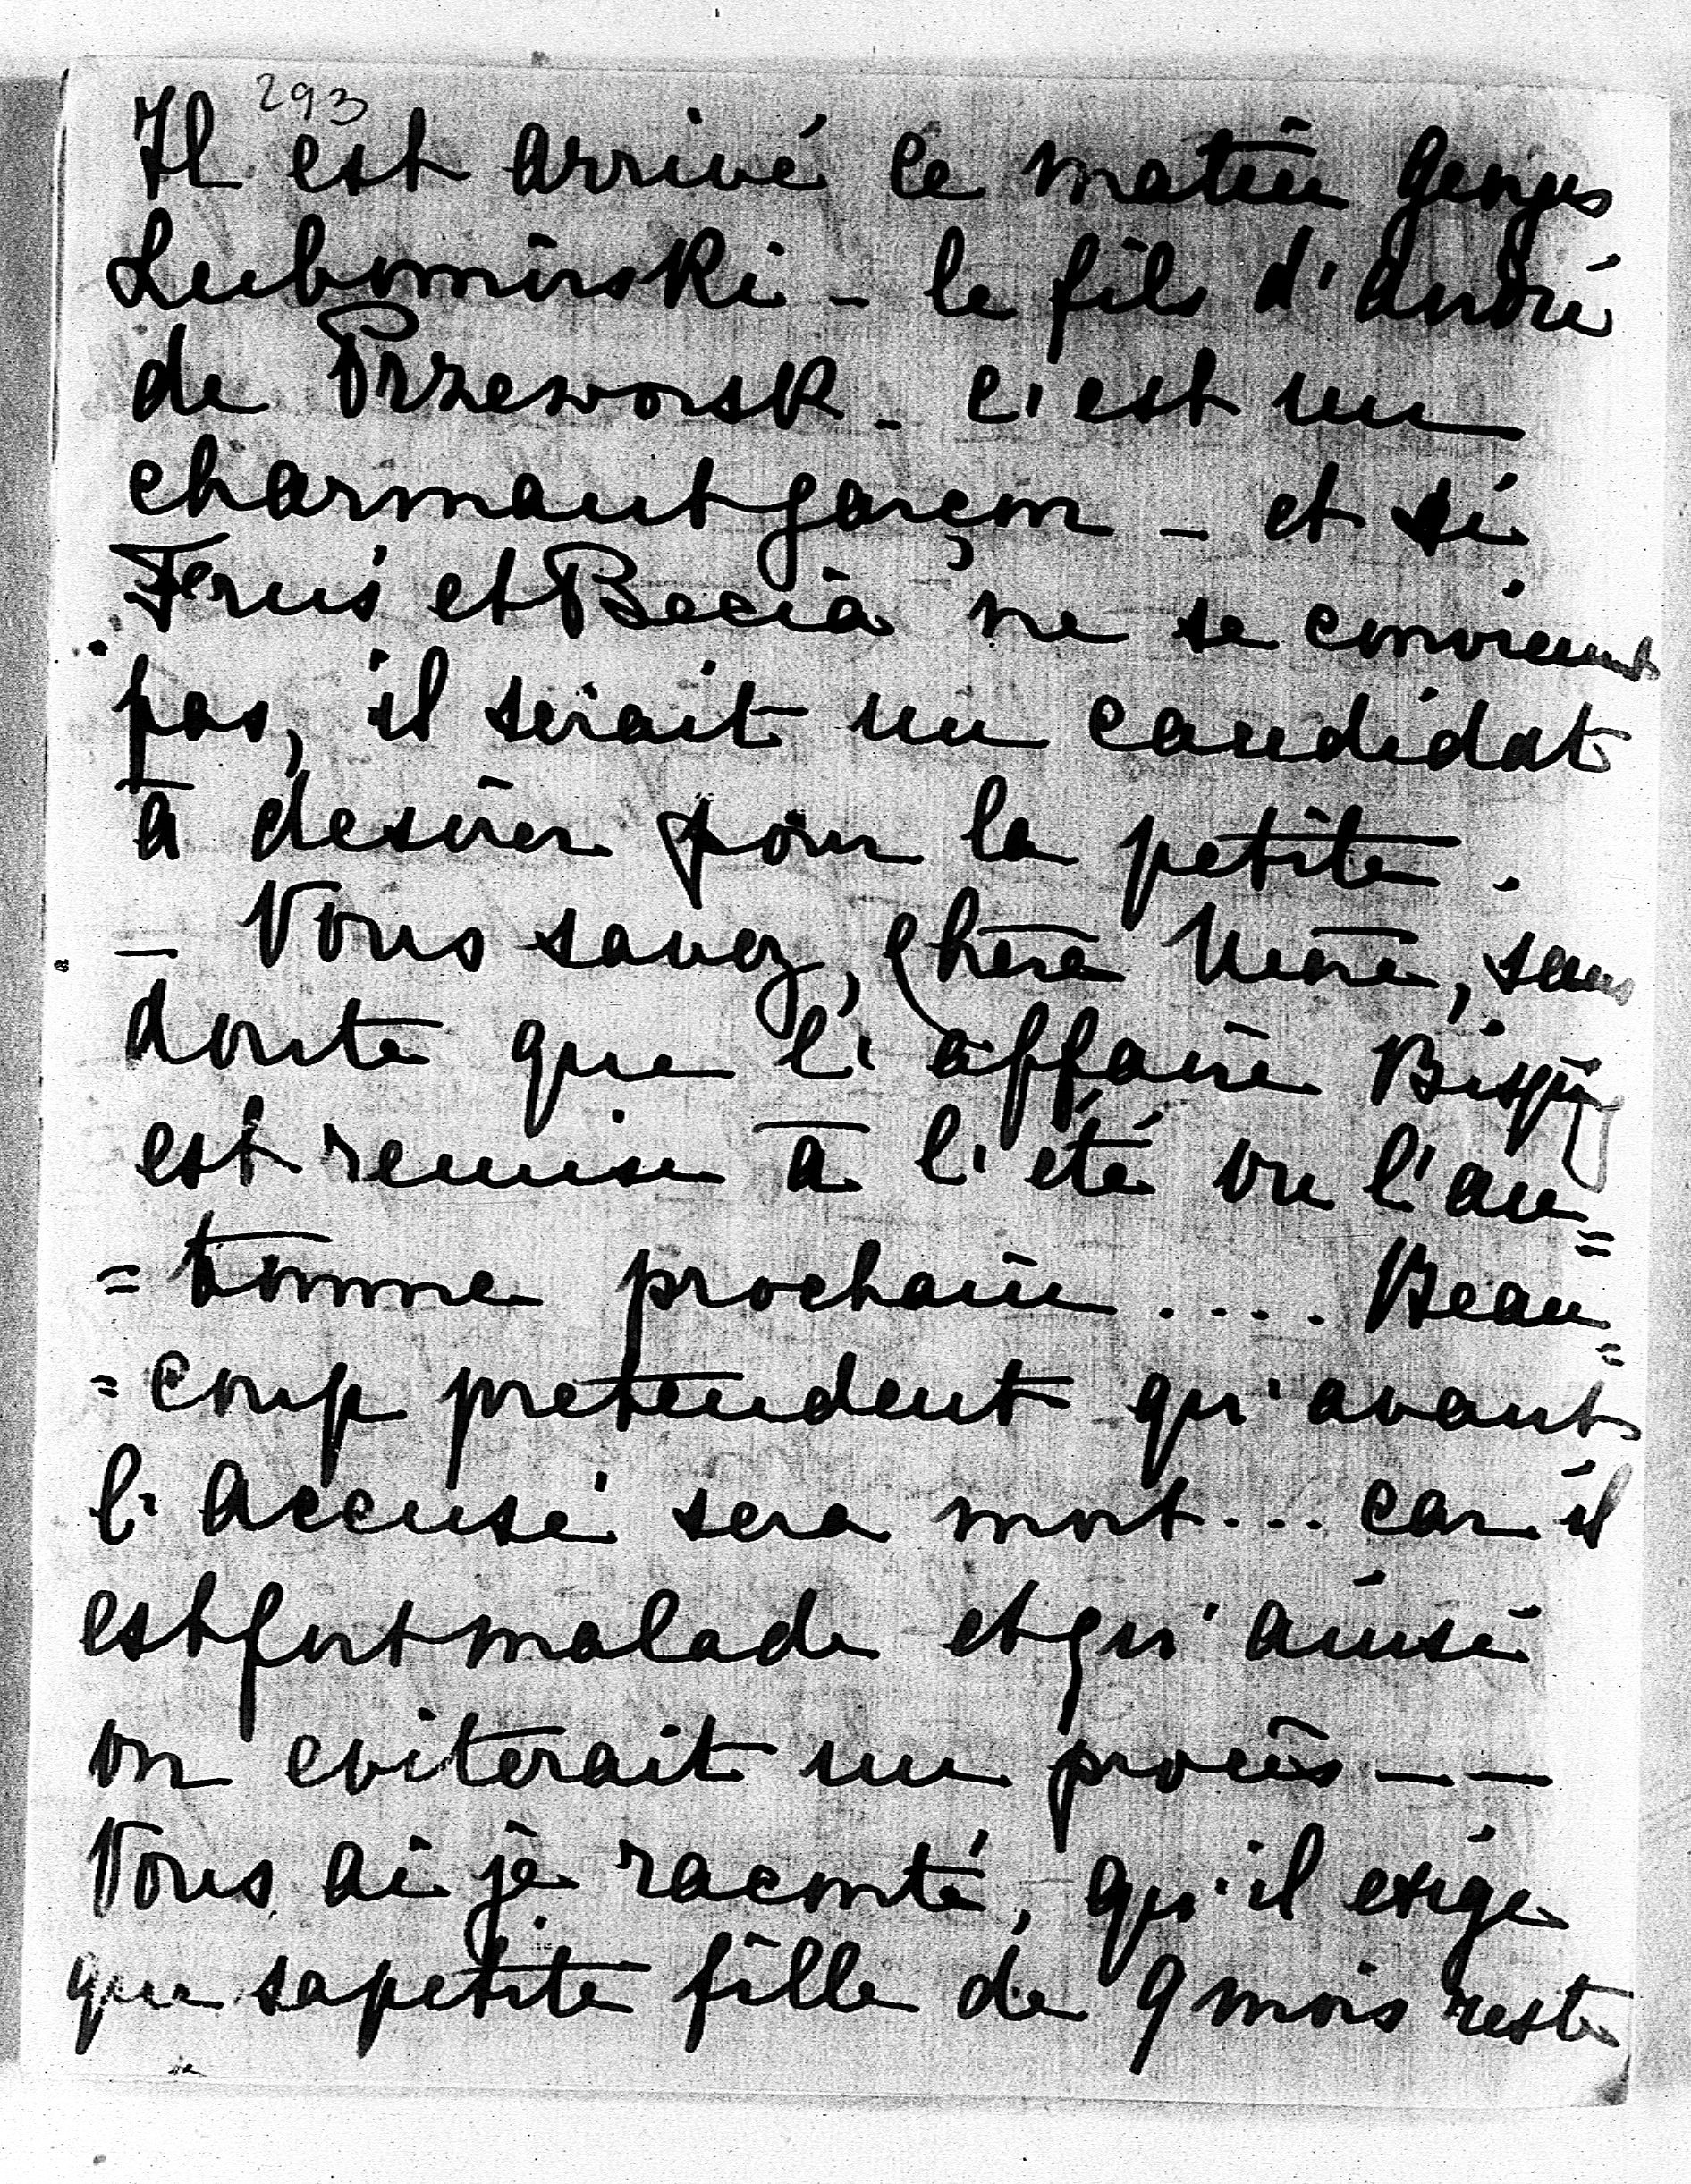 293
Il est arrivé ce matin Georges
Lubomirski - le fils d'André
de Przeworsk - c'est un
charmant garçon - et si
Fruś et Becia ne se conviennent
pas, il serait un candidat
à desirer pour la petite.
- Vous savez, chère Mère, sans
doute que l'affaire Bisping
est remise à l'été ou l'au=
=tomne prochain .... Beau=
=coup pretendent qu'avant
l'accusé sera mort... car il
est fort malade et qu'ainsi
on eviterait un procès - -
Vous ai je raconté, qu'il exige
que sa petite fille de 9 mois reste